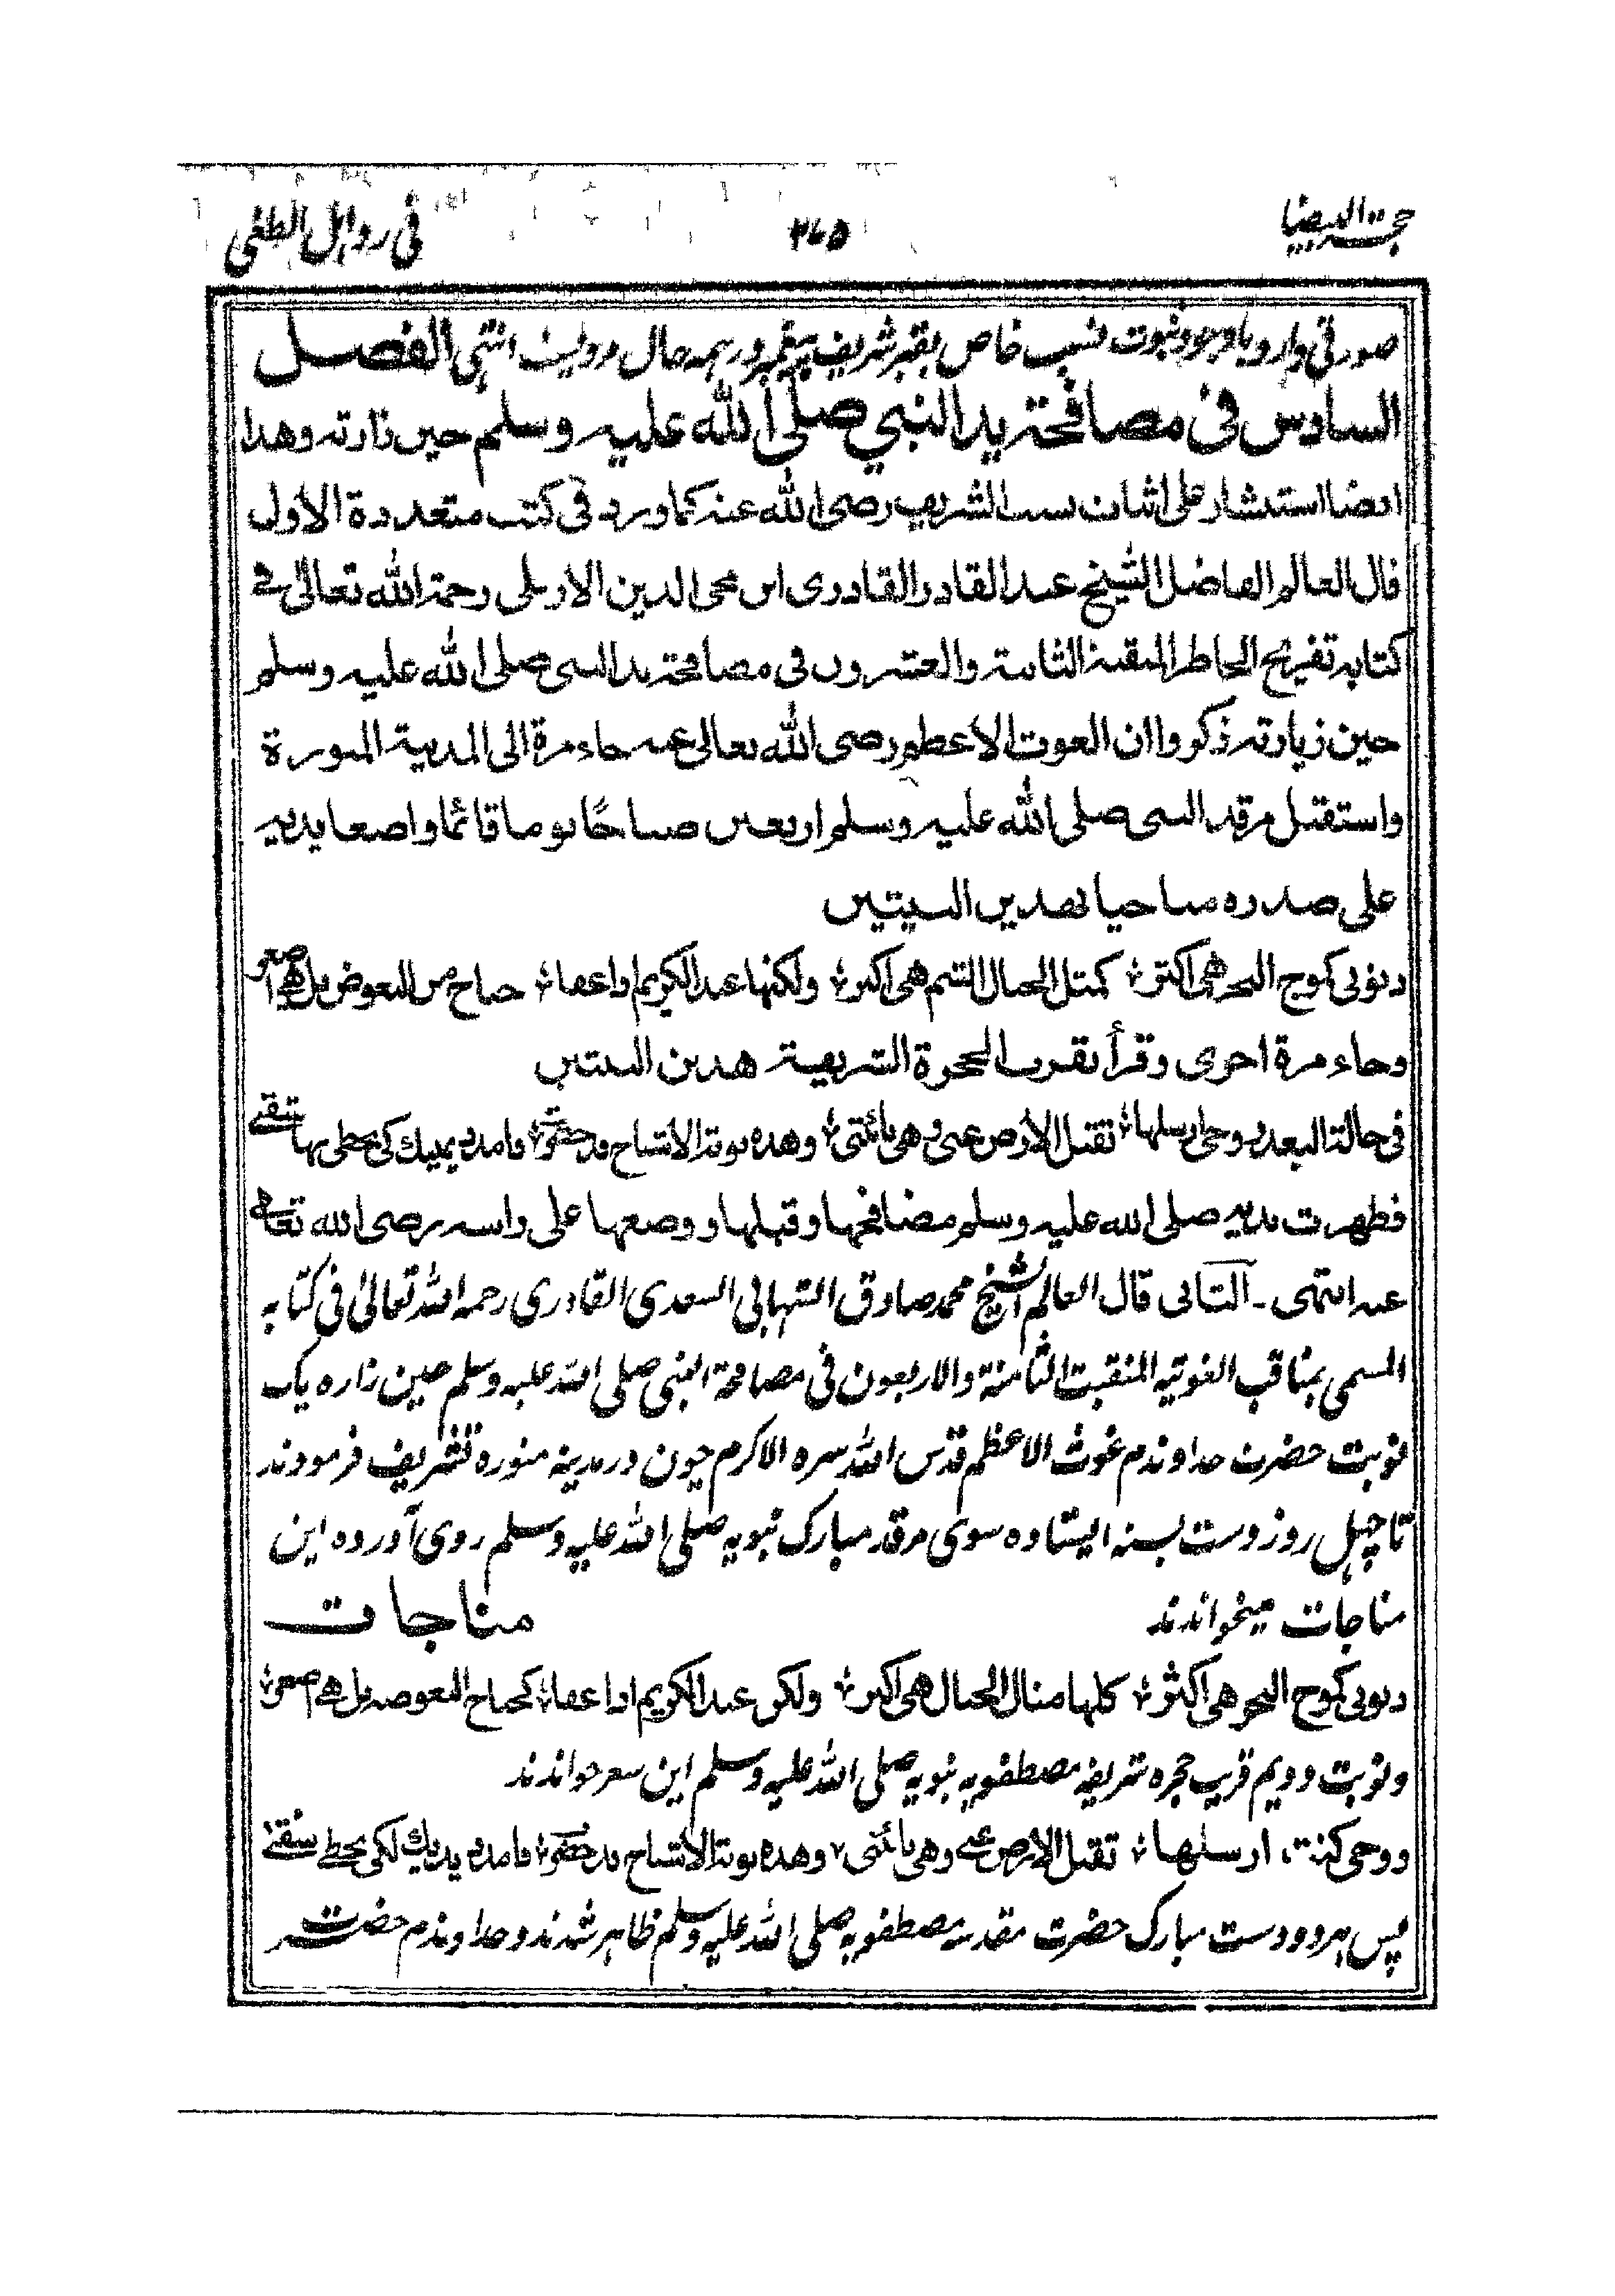 حجة البیضا ۲۶۵ فی رد اہل الطغی
صورتی دارد باوجود ثبوت نسب خاص بقبر شریف پیغمبر در ہمہ حال مرویست انتہی الفصل
السادس فی مصافحة ید النبي صلی الله علیه وسلم حین زارته وهذا
ایضا استشار علی اثبات نسب الشریف رضی الله عنه کما ورد فی کتب متعددة الاول
قال العالم الفاضل الشیخ عبد القادر القادری ابن محی الدین الاربلی رحمة الله تعالیٰ فی
کتابه تفریح الخاطر المنقبة الثامنة والعشرون فی مصافحة ید النبی صلی الله علیه وسلم
حین زیارته ذکروا ان الغوث الاعظم رضی الله تعالی عنه جاء مرة الی المدینة المنورة
واستقبل مرقد النبی صلی الله علیه وسلم اربعین صباحًا یوما قائما واضعا یدیه
علی صدره مناجیا بهذین البیتین
ذنوبی کموج البحر هی اکثر ؛ کمثل الجبال الشم هی اکبر ؛ ولکنها عند الکریم اذا عفا ؛ جناح من البعوض بل هی اصغر
وجاء مرة اخری وقرأ بقرب الحجرة الشریفة هذین البیتین
فی حالة البعد روحی ارسلها ؛ تقبل الارض عنی وهی نائبتی ؛ وهذه نوبة الاشباح قد حضرت ؛ فامدد یمینك کی تحظی بها شفتی
فظهرت یدیه صلی الله علیه وسلم فصافحها وقبلها و وضعها علی راسه رضی الله تعالی
عنه انتهی ۔ الثانی قال العالم الشیخ محمد صادق الشہابی السعدی القادری رحمہ اللہ تعالیٰ فی کتابہ
المسمی بمناقب الغوثیہ المنقبت الثامنة والاربعون فی مصافحة النبی صلی اللہ علیہ وسلم حین زارہ یک
نوبت حضرت خداوندم غوث الاعظم قدس اللہ سرہ الاکرم چون در مدینہ منورہ تشریف فرمودند
تا چہل روز دست بستہ ایستادہ سوی مرقد مبارک نبویہ صلی اللہ علیہ وسلم روی آوردہ این
مناجات میخواندند مناجات
ذنوبی کموج البحر هی اکثر ؛ کلها مثال الجبال هی اکبر ؛ ولکن عند الکریم اذا عفا ؛ کجناح البعوضه بل هی اصغر ؛
و نوبت دویم قریب حجرہ شریفہ مصطفویہ نبویہ صلی اللہ علیہ وسلم این شعر خواندند
روحی کنت ارسلها ؛ تقبل الارض عنی وهی نائبتی ؛ وهذه نوبة الاشباح قد حضرت ؛ فامدد یدیك لکی تحظی شفتی
پس ہر دو دست مبارک حضرت مقدسہ مصطفویہ صلی اللہ علیہ وسلم ظاہر شدند و خداوندم حضرت